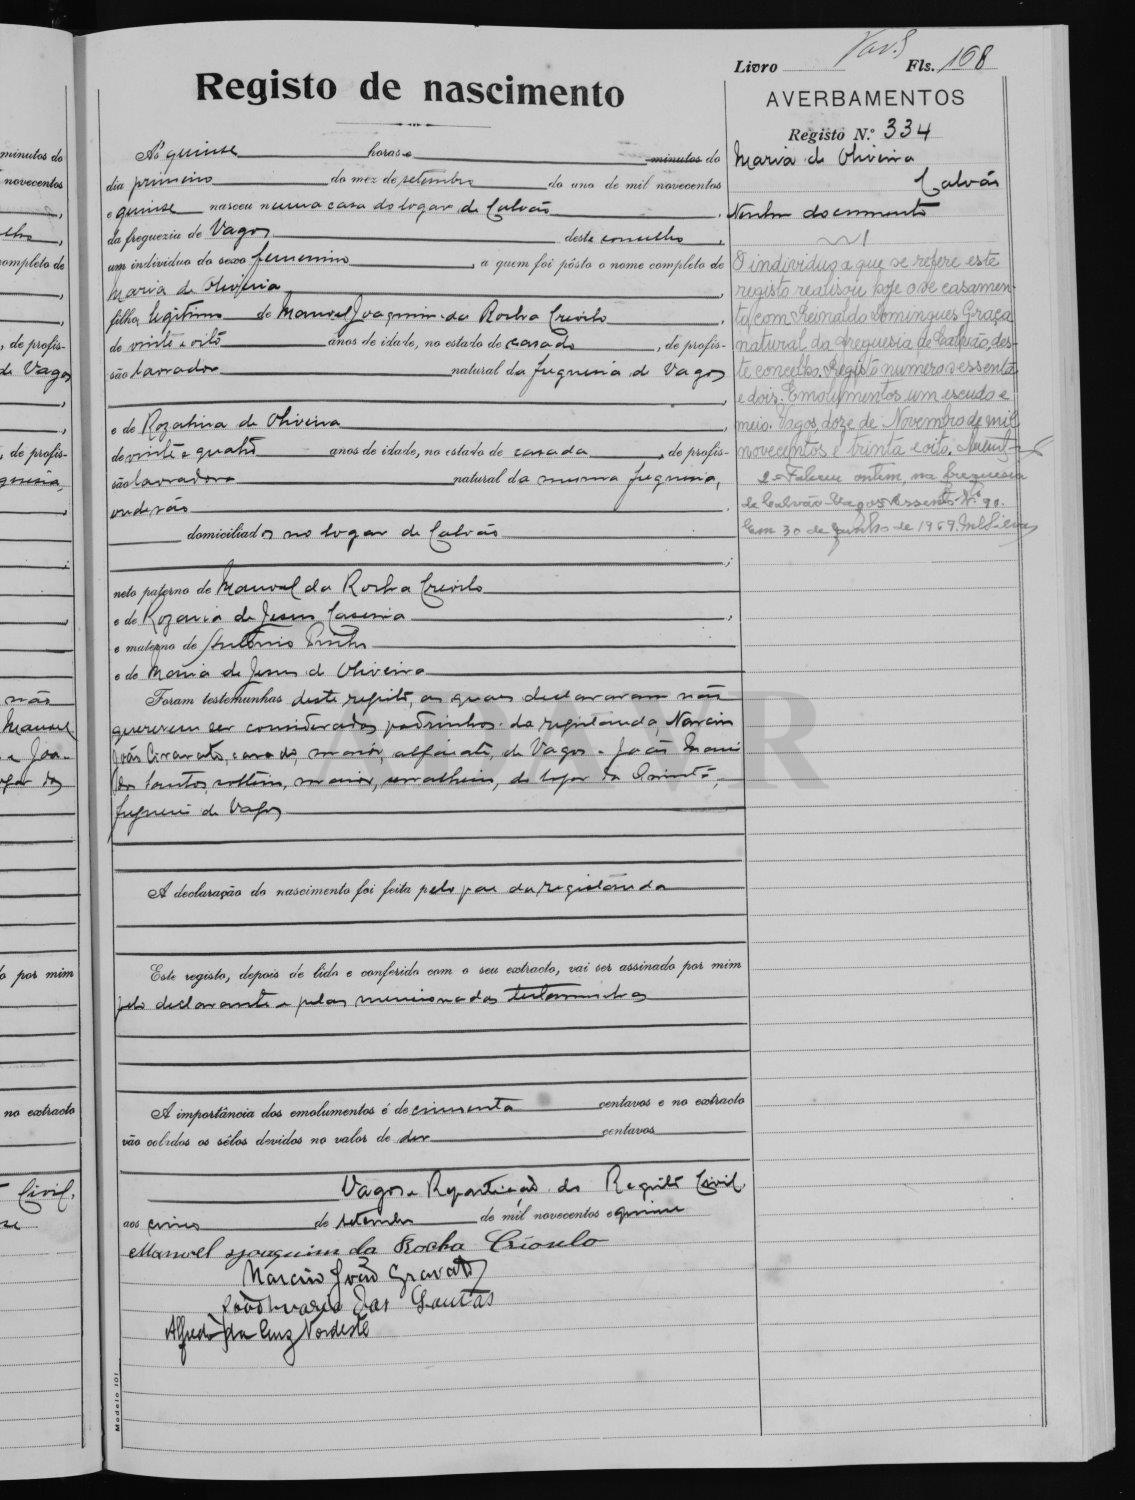 Livro Fls. 168
Registo de nascimento
AVERBAMENTOS
Registo N.º 334
Maria de Oliveira
Calvão
Nenhum documento
Às quinse horas e minutos do
dia primeiro do mez de setembro do ano de mil novecentos
e quinse nasceu numa casa do logar de Calvão,
da freguezia de Vagos deste concelho,
um individuo do sexo femenino, a quem foi pôsto o nome completo de
Maria de Oliveira,
filha legitima de Manuel Joaquim da Rocha Crioulo,
de vinte e oito anos de idade, no estado de casado, de profis-
são lavrador natural da freguesia de Vagos
,
e de Rozalina de Oliveira,
de vinte e quatro anos de idade, no estado de casada, de profis-
são lavradora natural da mesma freguesia,
onde são,
domiciliados no logar de Calvão
;
neto paterno de Manuel da Rocha Crioulo
e de Rozaria de Jesus,
e materno de António
e de Maria de Jesus de Oliveira
Foram testemunhas deste registo, os quaes declararam não
quererem ser considerados padrinhos da registanda Narciso
João Gravato, casado, maior, alfaiate, de Vagos e João Maria
dos Santos, solteiro, maior, serralheiro, do logar da
freguesia de Vagos
A declaração do nascimento foi feita pelo pae da registanda
Este registo, depois de lido e conferido com o seu extracto, vai ser assinado por mim
pelo declarante e pelas mencionadas testemunhas
A importância dos emolumentos é de cincoenta centavos e no extracto
vão colados os sêlos devidos no valor de dez centavos
Vagos e Repartição do Registo Civil,
aos cinco de setembro de mil novecentos e quinse
Manoel Joaquim da Rocha Crioulo
Narciso João Gravato
João Maria dos Santos
Alfredo da Cruz Nordeste
O individuo a que se refere este
registo realisou hoje o de casamen-
to com Reinaldo Domingues Graça
natural da freguesia de Calvão, des-
te concelho. Registo numero sessenta
e dois. Emolumentos um escudo e
meio. Vagos, doze de Novembro de mil
novecentos e trinta e oito.
2.º Faleceu ontem, na freguesia
de Calvão-Vagos. Assento N.º 90.
Em 30 de Junho de 1969.
Modelo 101
minutos do
novecentos
completo de
, de profis-
de Vagos
, de profis-
não
Manuel
o por mim
no extracto
Civil,
AVR